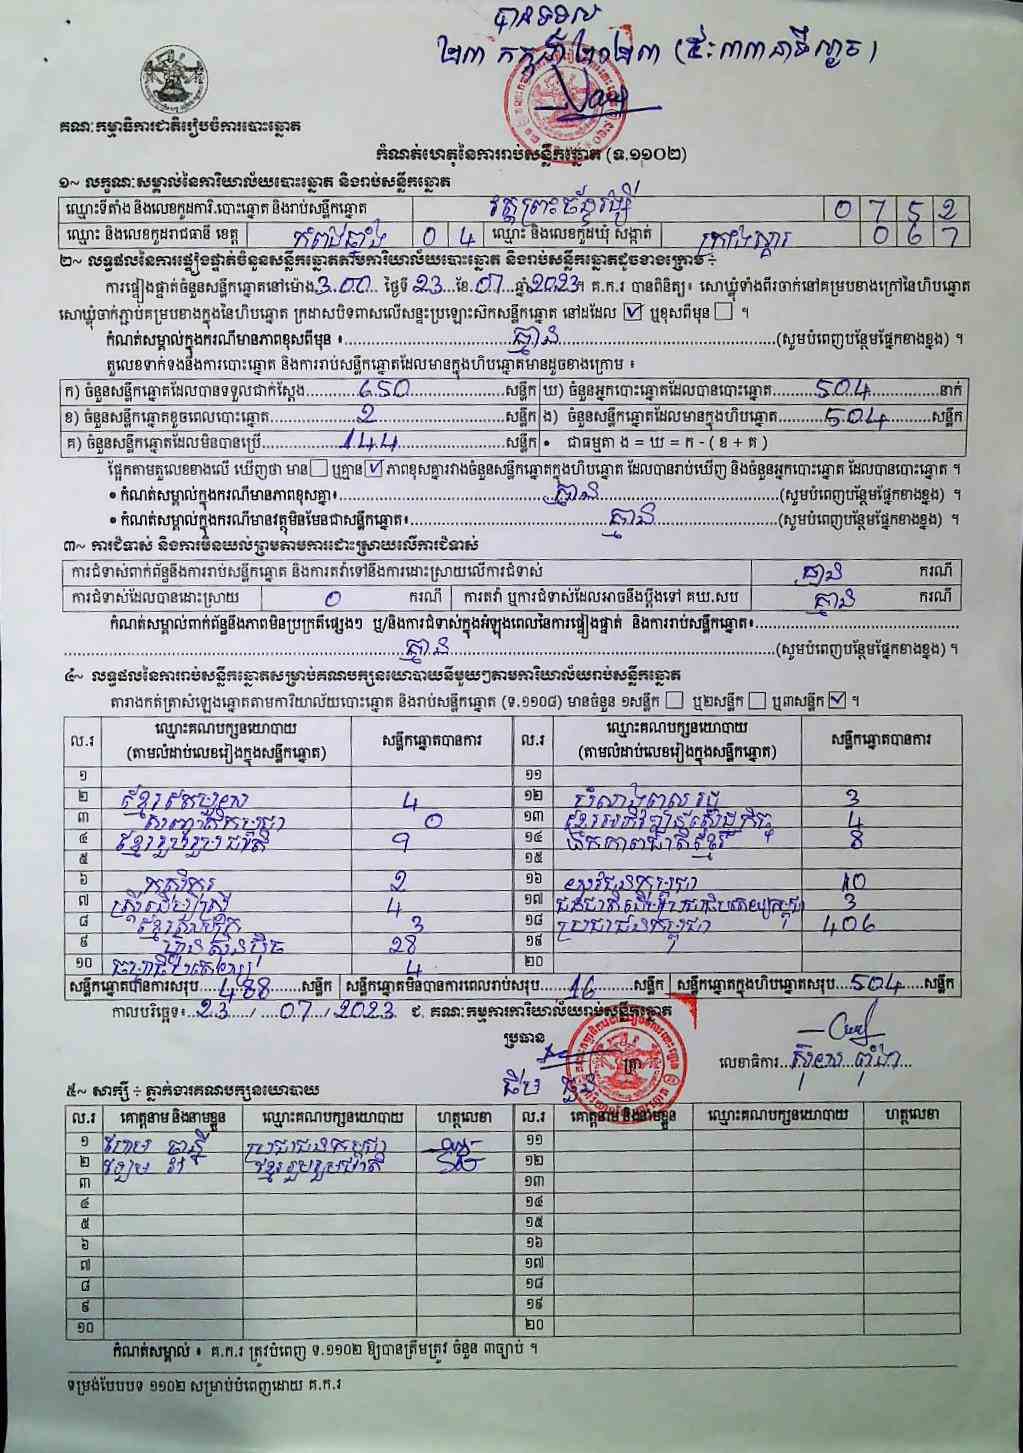 បានទទួល
២៣ កក្កដា ២០២៣ (៥:៣៣នាទីល្ងាច)
គណៈកម្មាធិការជាតិរៀបចំការបោះឆ្នោត
កំណត់ហេតុនៃការរាប់សន្លឹកឆ្នោត (ទ.១១០២)
១~ លក្ខណៈសម្គាល់នៃការិយាល័យបោះឆ្នោត និងរាប់សន្លឹកឆ្នោត
ឈ្មោះទីតាំង និងលេខកូដការិ.បោះឆ្នោត និងរាប់សន្លឹកឆ្នោត វត្តព្រះច័ន្ទរង្សី 0 7 5 2
ឈ្មោះ និងលេខកូដរាជធានី ខេត្ត កំពង់ឆ្នាំង 0 4 ឈ្មោះ និងលេខកូដឃុំ សង្កាត់ ក្រាំងស្គារ 0 6 7
២~ លទ្ធផលនៃការផ្ទៀងផ្ទាត់ចំនួនសន្លឹកឆ្នោតតាមការិយាល័យបោះឆ្នោត និងរាប់សន្លឹកឆ្នោតដូចខាងក្រោម ÷
ការផ្ទៀងផ្ទាត់ចំនួនសន្លឹកឆ្នោតនៅម៉ោង 3.00 ថ្ងៃទី 23 ខែ 07 ឆ្នាំ 2023 ។ គ.ក.រ បានពិនិត្យ៖ សោឃ្លុំទាំងពីរចាក់នៅគម្របខាងក្រៅនៃហិបឆ្នោត
សោឃ្លុំចាក់ភ្ជាប់គម្របខាងក្នុងនៃហិបឆ្នោត ក្រដាសបិទពាសលើសន្ទះប្រឡោះស៊កសន្លឹកឆ្នោត នៅដដែល ☑ ឬខុសពីមុន ☐ ។
កំណត់សម្គាល់ក្នុងករណីមានភាពខុសពីមុន ៖ គ្មាន (សូមបំពេញបន្ថែមផ្នែកខាងខ្នង) ។
តួលេខទាក់ទងនឹងការបោះឆ្នោត និងការរាប់សន្លឹកឆ្នោតដែលមានក្នុងហិបឆ្នោតមានដូចខាងក្រោម ៖
ក) ចំនួនសន្លឹកឆ្នោតដែលបានទទួលជាក់ស្តែង 650 សន្លឹក ឃ) ចំនួនអ្នកបោះឆ្នោតដែលបានបោះឆ្នោត 504 នាក់
ខ) ចំនួនសន្លឹកឆ្នោតខូចពេលបោះឆ្នោត 2 សន្លឹក ង) ចំនួនសន្លឹកឆ្នោតដែលមានក្នុងហិបឆ្នោត 504 សន្លឹក
គ) ចំនួនសន្លឹកឆ្នោតដែលមិនបានប្រើ 144 សន្លឹក • ជាធម្មតា ង = ឃ = ក - ( ខ + គ )
ផ្អែកតាមតួលេខខាងលើ ឃើញថា មាន ☐ ឬគ្មាន ☑ ភាពខុសគ្នារវាងចំនួនសន្លឹកឆ្នោតក្នុងហិបឆ្នោត ដែលបានរាប់ឃើញ និងចំនួនអ្នកបោះឆ្នោត ដែលបានបោះឆ្នោត ។
• កំណត់សម្គាល់ក្នុងករណីមានភាពខុសគ្នា៖ គ្មាន (សូមបំពេញបន្ថែមផ្នែកខាងខ្នង) ។
• កំណត់សម្គាល់ក្នុងករណីមានវត្ថុមិនមែនជាសន្លឹកឆ្នោត៖ គ្មាន (សូមបំពេញបន្ថែមផ្នែកខាងខ្នង) ។
៣~ ការជំទាស់ និងការមិនយល់ព្រមតាមការដោះស្រាយលើការជំទាស់
ការជំទាស់ពាក់ព័ន្ធនឹងការរាប់សន្លឹកឆ្នោត និងការតវ៉ាទៅនឹងការដោះស្រាយលើការជំទាស់ គ្មាន ករណី
ការជំទាស់ដែលបានដោះស្រាយ 0 ករណី ការតវ៉ា ឬការជំទាស់ដែលអាចនឹងប្តឹងទៅ គឃ.សប គ្មាន ករណី
កំណត់សម្គាល់ពាក់ព័ន្ធនឹងភាពមិនប្រក្រតីផ្សេងៗ ឬ/និងការជំទាស់ក្នុងអំឡុងពេលនៃការផ្ទៀងផ្ទាត់ និងការរាប់សន្លឹកឆ្នោត៖
គ្មាន (សូមបំពេញបន្ថែមផ្នែកខាងខ្នង) ។
៤~ លទ្ធផលនៃការរាប់សន្លឹកឆ្នោតសម្រាប់គណបក្សនយោបាយនីមួយៗតាមការិយាល័យរាប់សន្លឹកឆ្នោត
តារាងកត់ត្រាសំឡេងឆ្នោតតាមការិយាល័យបោះឆ្នោត និងរាប់សន្លឹកឆ្នោត (ទ.១១០៨) មានចំនួន ១សន្លឹក ☐ ឬ២សន្លឹក ☐ ឬ៣សន្លឹក ☑ ។
ល.រ ឈ្មោះគណបក្សនយោបាយ (តាមលំដាប់លេខរៀងក្នុងសន្លឹកឆ្នោត) សន្លឹកឆ្នោតបានការ ល.រ ឈ្មោះគណបក្សនយោបាយ (តាមលំដាប់លេខរៀងក្នុងសន្លឹកឆ្នោត) សន្លឹកឆ្នោតបានការ
១ ១១
២ ខ្មែរឥស្សរៈ 4 ១២ បំលាស់ពលរដ្ឋ 3
៣ សញ្ជាតិកម្ពុជា 0 ១៣ ខ្មែរអភិវឌ្ឍន៍សេដ្ឋកិច្ច 4
៤ ខ្មែររួបរួមជាតិ 9 ១៤ ឯកភាពជាតិខ្មែរ 8
៥ ១៥
៦ កសិករ 2 ១៦ យុវជនកម្ពុជា 10
៧ ស្ត្រីដើម្បីស្ត្រី 4 ១៧ ជនជាតិដើមប្រជាធិបតេយ្យកម្ពុជា 3
៨ ខ្មែរ 3 ១៨ ប្រជាជនកម្ពុជា 406
៩ ហ៊្វុនស៊ិនប៉ិច 28 ១៩
១០ ធម្មាធិបតេយ្យ 4 ២០
សន្លឹកឆ្នោតបានការសរុប 488 សន្លឹក សន្លឹកឆ្នោតមិនបានការពេលរាប់សរុប 16 សន្លឹក សន្លឹកឆ្នោតក្នុងហិបឆ្នោតសរុប 504 សន្លឹក
កាលបរិច្ឆេទ៖ 23 / 07 / 2023 ជ. គណៈកម្មការការិយាល័យរាប់សន្លឹកឆ្នោត
ប្រធាន
ត្រា
លេខាធិការ
៥~ សាក្សី ÷ ភ្នាក់ងារគណបក្សនយោបាយ
ល.រ គោត្តនាម និងនាមខ្លួន ឈ្មោះគណបក្សនយោបាយ ហត្ថលេខា ល.រ គោត្តនាម និងនាមខ្លួន ឈ្មោះគណបក្សនយោបាយ ហត្ថលេខា
១ ប្រជាជនកម្ពុជា ១១
២ ខ្មែររួបរួមជាតិ ១២
៣ ១៣
៤ ១៤
៥ ១៥
៦ ១៦
៧ ១៧
៨ ១៨
៩ ១៩
១០ ២០
កំណត់សម្គាល់ ៖ គ.ក.រ ត្រូវបំពេញ ទ.១១០២ ឱ្យបានត្រឹមត្រូវ ចំនួន ៣ច្បាប់ ។
ទម្រង់បែបបទ ១១០២ សម្រាប់បំពេញដោយ គ.ក.រ